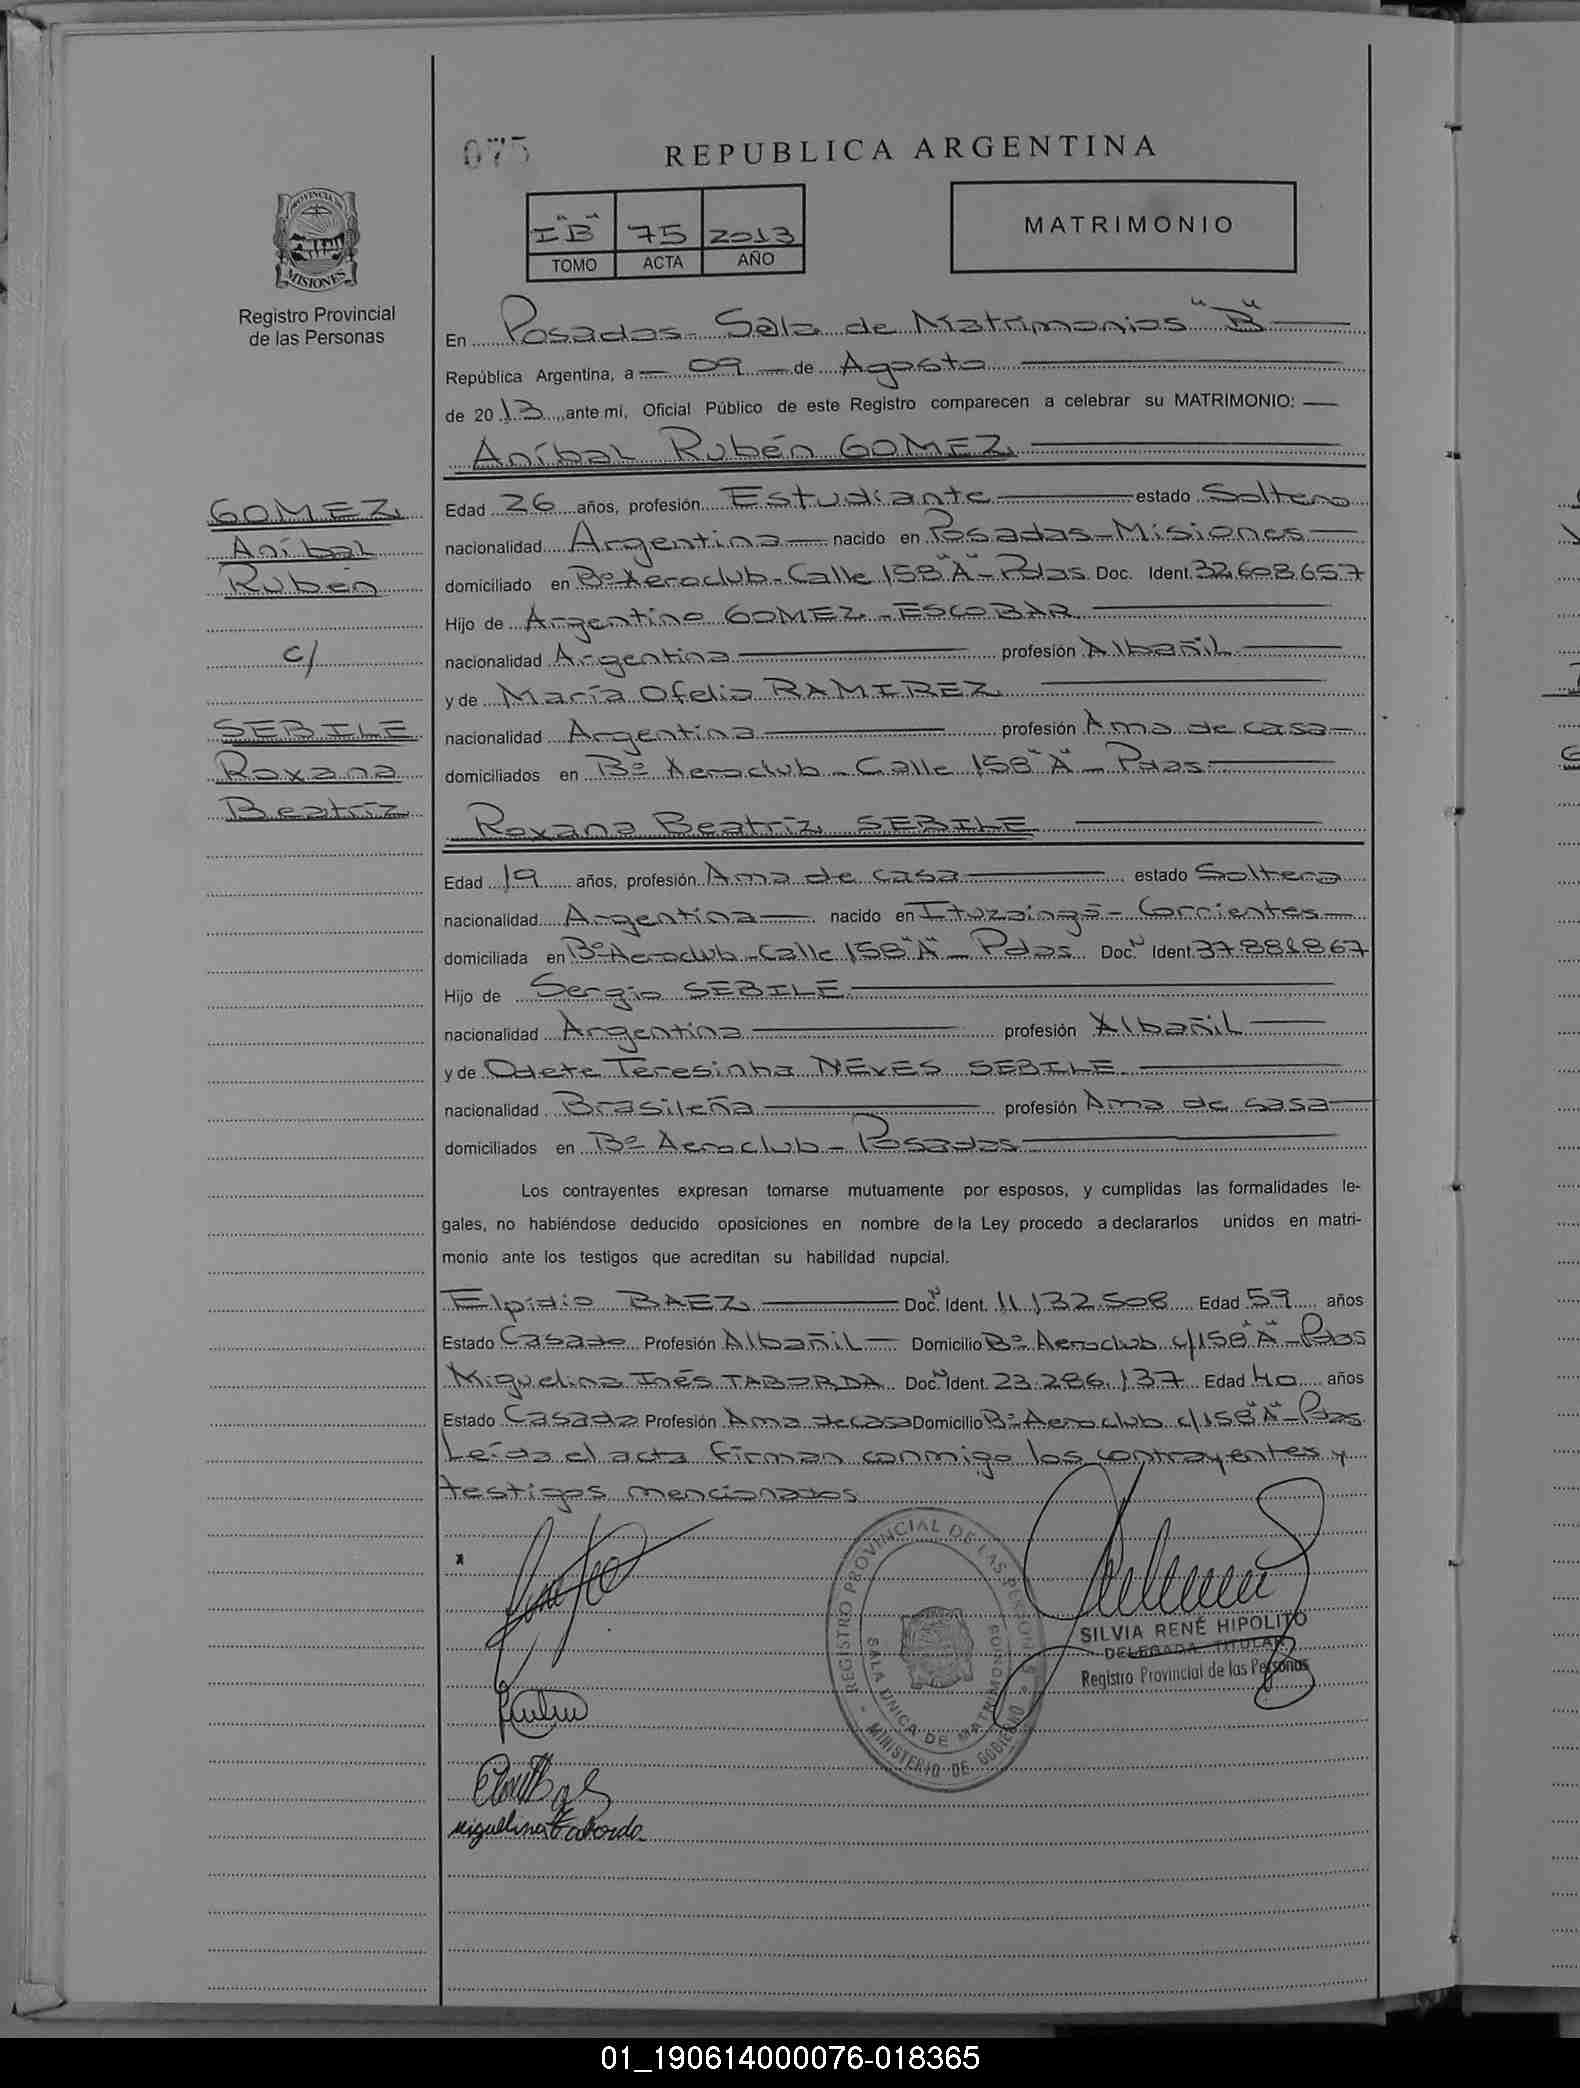 075
REPUBLICA ARGENTINA
I "B" 75 2013
TOMO ACTA AÑO
MATRIMONIO
PROVINCIA DE
MISIONES
Registro Provincial
de las Personas
En Posadas - Sala de Matrimonios "B"
República Argentina, a 09 de Agosto
de 2013 ante mí, Oficial Público de este Registro comparecen a celebrar su MATRIMONIO:
Aníbal Rubén GOMEZ
GOMEZ
Aníbal
Rubén
c/
SEBILE
Roxana
Beatríz
Edad 26 años, profesión Estudiante estado Soltero
nacionalidad Argentina nacido en Posadas - Misiones
domiciliado en Bº Aeroclub - Calle 158 "A" - Pdas Doc. Ident. 32.608.657
Hijo de Argentino GOMEZ - ESCOBAR
nacionalidad Argentina profesión Albañil
y de María Ofelia RAMIREZ
nacionalidad Argentina profesión Ama de casa
domiciliados en Bº Aeroclub - Calle 158 "A" - Pdas
Roxana Beatríz SEBILE
Edad 19 años, profesión Ama de casa estado Soltera
nacionalidad Argentina nacido en Ituzaingó - Corrientes
domiciliada en Bº Aeroclub - Calle 158 "A" - Pdas Doc. N Ident.
Hijo de Sergio SEBILE
nacionalidad Argentina profesión Albañil
y de Odete Teresinha NEVES SEBILE
nacionalidad Brasileña profesión Ama de casa
domiciliados en Bº Aeroclub - Posadas
Los contrayentes expresan tomarse mutuamente por esposos, y cumplidas las formalidades le-
gales, no habiéndose deducido oposiciones en nombre de la Ley procedo a declararlos unidos en matri-
monio ante los testigos que acreditan su habilidad nupcial.
Elpidio BAEZ Doc. N Ident. 11.132.508 Edad 59 años
Estado Casado Profesión Albañil Domicilio Bº Aeroclub c/158 "A" - Pdas
Miguelina Inés TABORDA Doc. N Ident. 23.286.137 Edad 40 años
Estado Casada Profesión Ama de casa Domicilio Bº Aeroclub c/158 "A" - Pdas
Leída el acta firman conmigo los contrayentes y
testigos mencionados
REGISTRO PROVINCIAL DE LAS PERSONAS
SALA UNICA DE MATRIMONIOS
MINISTERIO DE GOBIERNO
SILVIA RENÉ HIPOLITO
DELEGADA TITULAR
Registro Provincial de las Personas
Miguelina Taborda
01_190614000076-018365